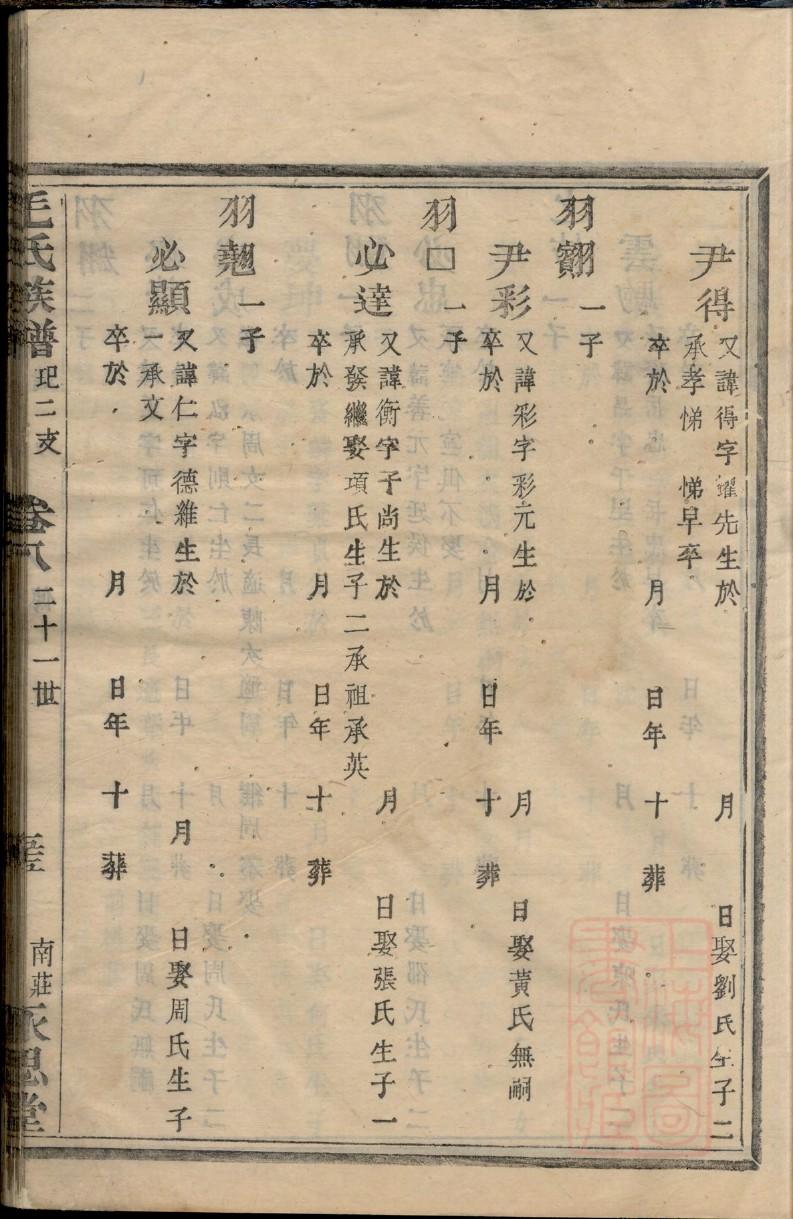 尹得 又諱得字躍先生於 月 日娶劉氏生子二
承孝悌 悌早卒
卒於 月 日年 十 葬
羽翿 一子
尹彩 又諱彩字彩元生於 月 日娶黃氏無嗣
卒於 月 日年 十 葬
羽□ 一子
必達 又諱衡字子尚生於 月 日娶張氏生子一
承發繼娶項氏生子二承祖承英
卒於 月 日年 十 葬
羽翹 一子
必顯 又諱仁字德維生於 月 日娶周氏生子
一承文
卒於 月 日年 十 葬
毛氏族譜 玘二支 卷八 二十一世 南莊永思堂